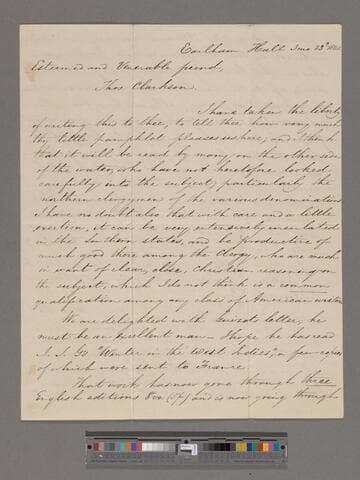 Earlham Hall 3mo 23d
Esteemed and Venerable friend,
Thos Clarkson.
I have taken the liberty
of writing this to thee, to tell thee how very much
thy little pamphlet pleases us here, and I think
that it will be read by many on the other side
of the water, who have not heretofore looked
carefully into the subject, particularly the
northern clergymen of the various denominations
I have no doubt also that with care and a little
exertion, it can be very extensively circulated
in the Southern states, and be productive of
much good there among the Clergy, who are much
in want of clear, close, Christian reasoning on
the subject, which I do not think is a common
qualification among any class of American writers
We are delighted with Guizot letter, he
must be an excellent man I hope he has read
J. J. Gs "Winter in the West Indies", a few copies
of which were sent to France.
That work has now gone through three
English editions 8vo and is now going through